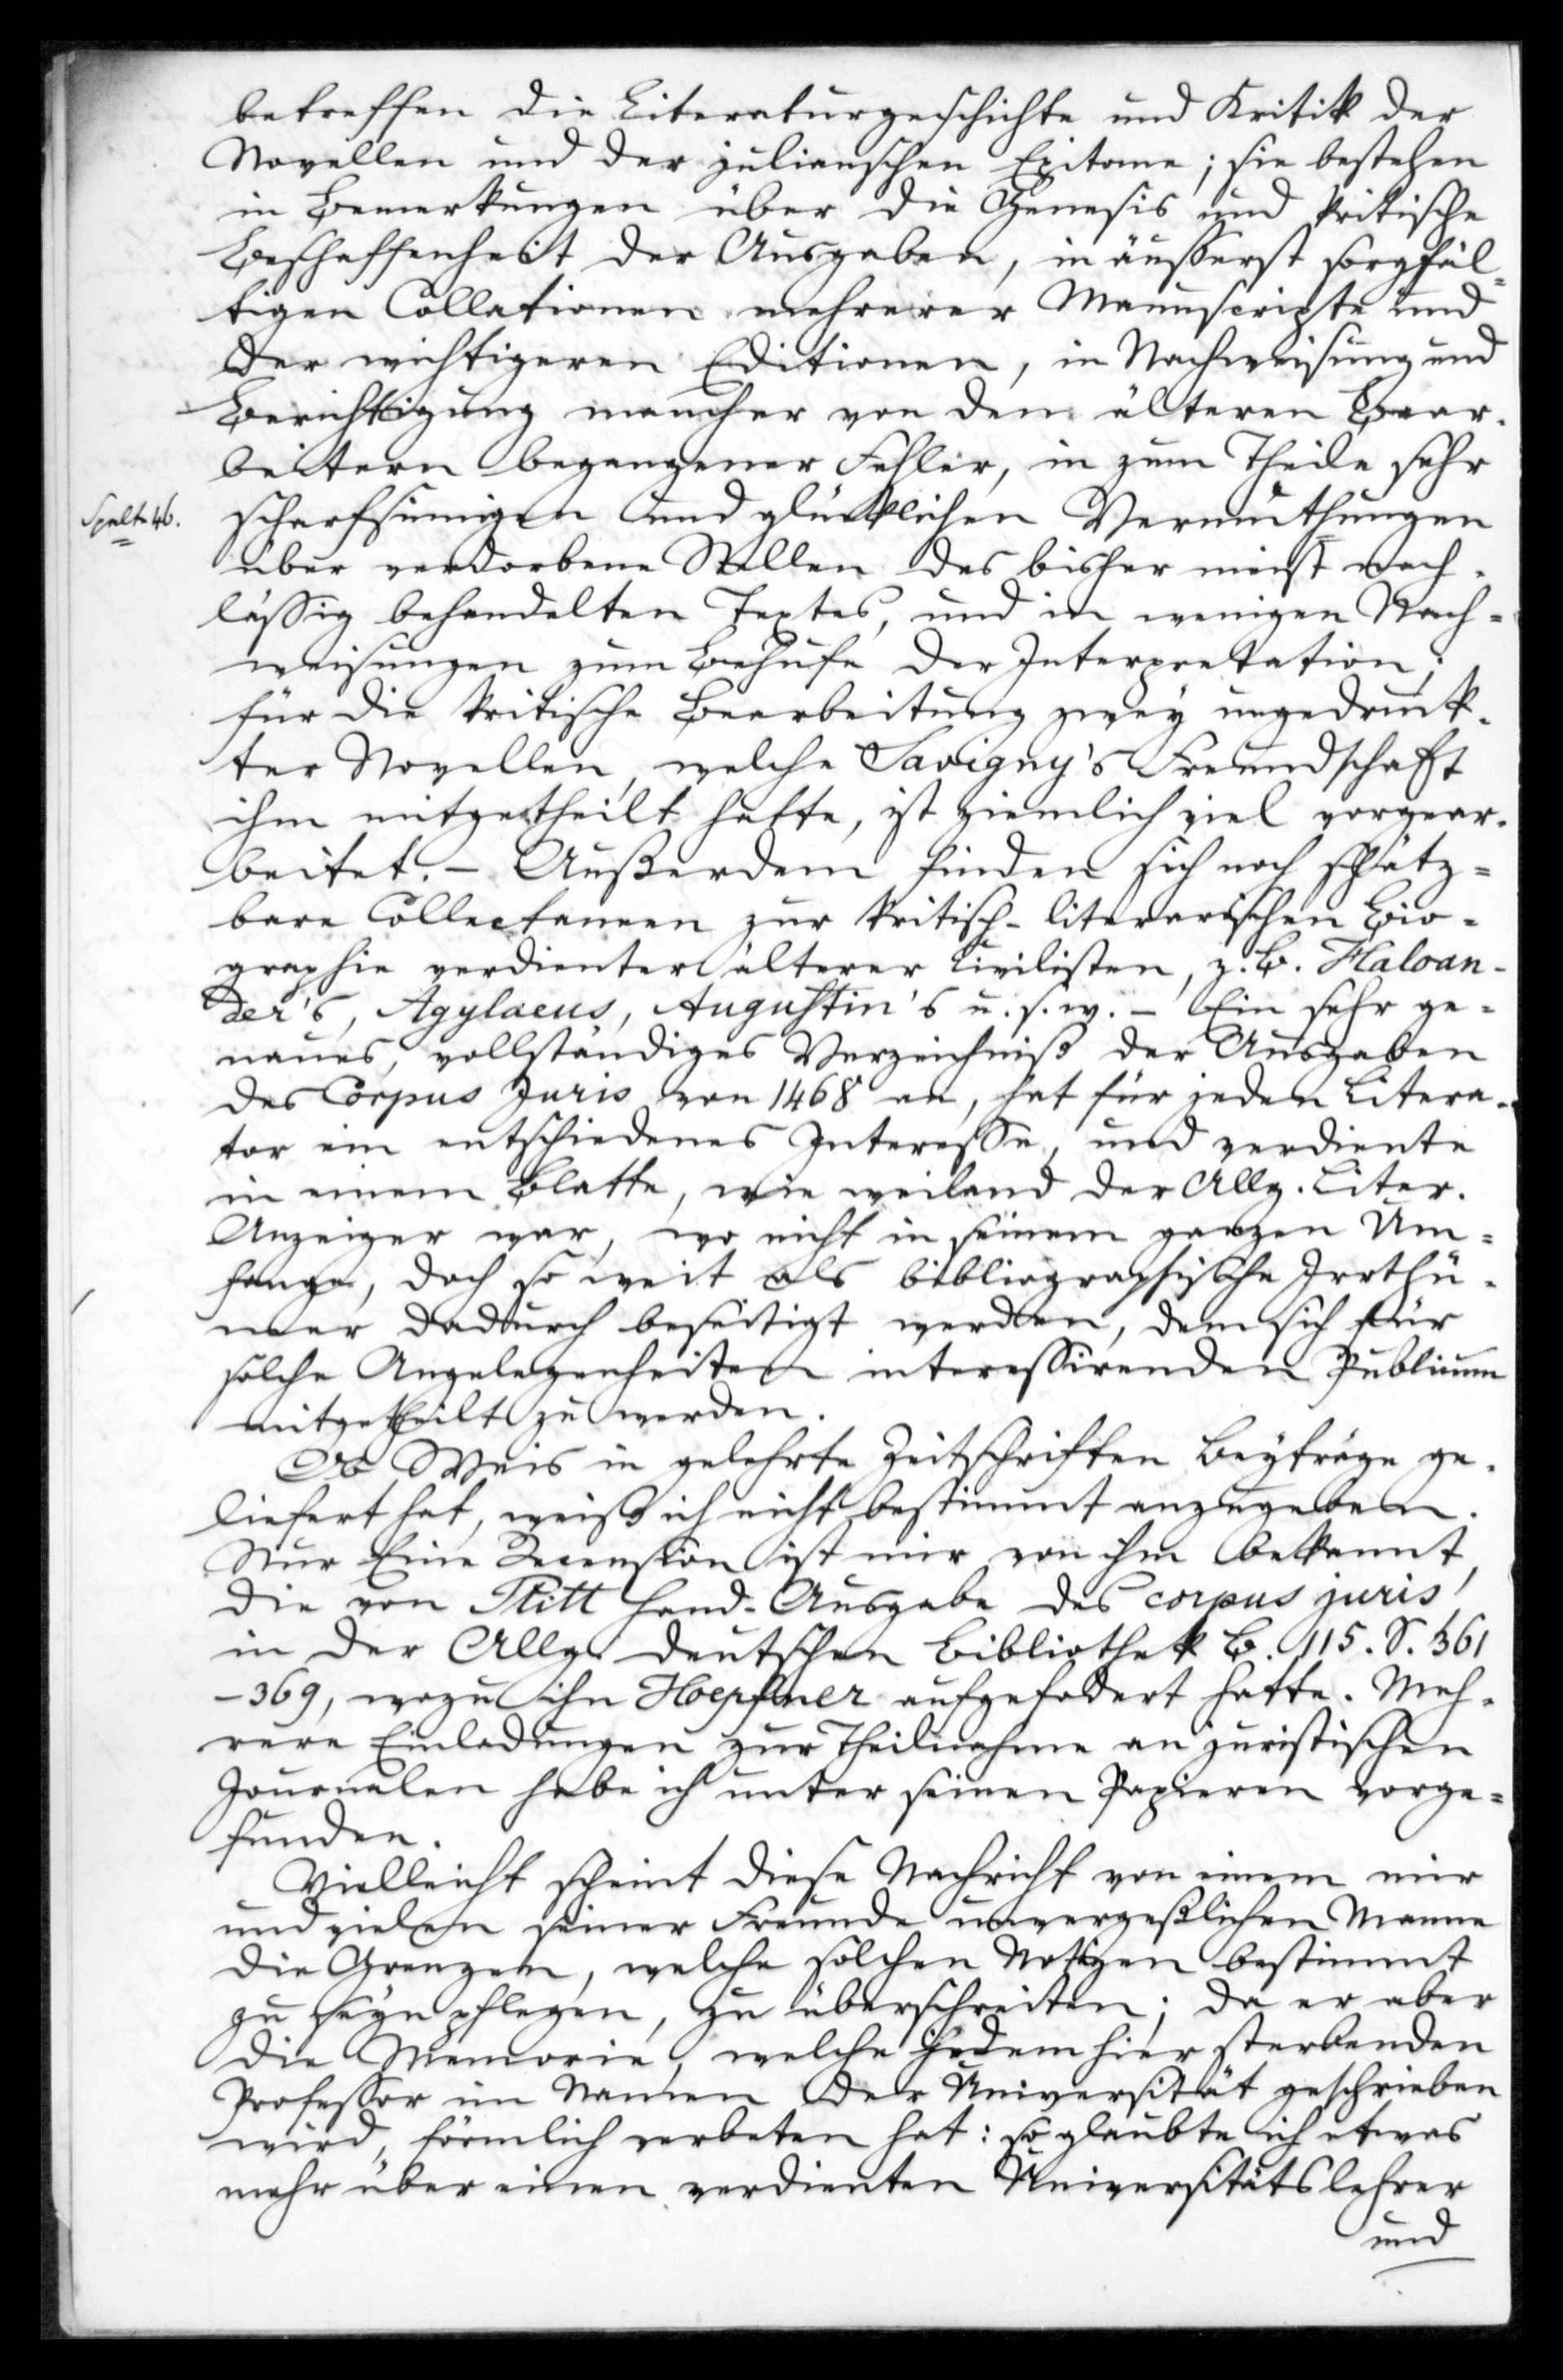 betreffen die Literaturgeschichte und Kritik der
Novellen und der julianschen Epitome; sie bestehen
in Bemerkungen über die Genesis und kritische
Beschaffenheit der Ausgaben, in äusserst sorgfäl=
tigen Collationen mehrerer Manuscripte und
der wichtigeren Editionen, in Nachweisung und
Berichtigung mancher von den älteren Bear-
beitern begangener Fehler, in zum Theile sehr
Spalte 46.
scharfsinnigen und glücklichen Vermuthungen
über verdorbene Stellen des bisher meist nach-
lässig behandelten Textes, und in wenigen Nach=
weisungen zum Behufe der Interpretation;
für die kritische Bearbeitung zwey ungedruck-
ter Novellen, welche Savigny's Freundschaft
ihm mitgetheilt hatte, ist ziemlich viel vorgear-
beitet. – Außerdem finden sich noch schätz=
bare Collectaneen zur kritisch-literarischen Bio=
graphie verdienter älterer Civilisten, z. B. Haloan-
der's, Agylaeus, Augustin's u. s. w. – Ein sehr ge=
naues, vollständiges Verzeichniß der Ausgaben
des Corpus Juris von 1468 an, hat für jeden Litera-
tor ein entschiedenes Interesse, und verdiente
in einem Blatte, wie weiland der Allg. Liter.
Anzeiger war, wo nicht in seinem ganzen Um=
fange, doch so weit als bibliographische Irrthü-
mer dadurch beseitigt werden, dem sich für
solche Angelegenheiten interessirenden Publicum
mitgetheilt zu werden.
Ob Weis in gelehrte Zeitschriften Beyträge ge-
liefert hat, weiß ich nicht bestimmt anzugeben.
Nur Eine Recension ist mir von ihm bekannt,
die von Plitt Hand-Ausgabe des corpus juris
in der Allg. deutschen Bibliothek B. 115. S. 361
–369, wozu ihn Hoepfner aufgefodert hatte. Meh-
rere Einladungen zur Theilnahme an juristischen
Journalen habe ich unter seinen Papieren vorge=
funden.
Vielleicht scheint diese Nachricht von einem mir
und vielen seiner Freunde unvergeßlichen Manne
die Grenzen, welche solchen Notizen bestimmt
zu seyn pflegen, zu überschreiten; da er aber
die Memorie, welche jedem hier sterbenden
Professor im Namen der Universität geschrieben
wird, förmlich verbeten hat: so glaubte ich etwas
mehr über einen verdienten Universitätslehrer
und